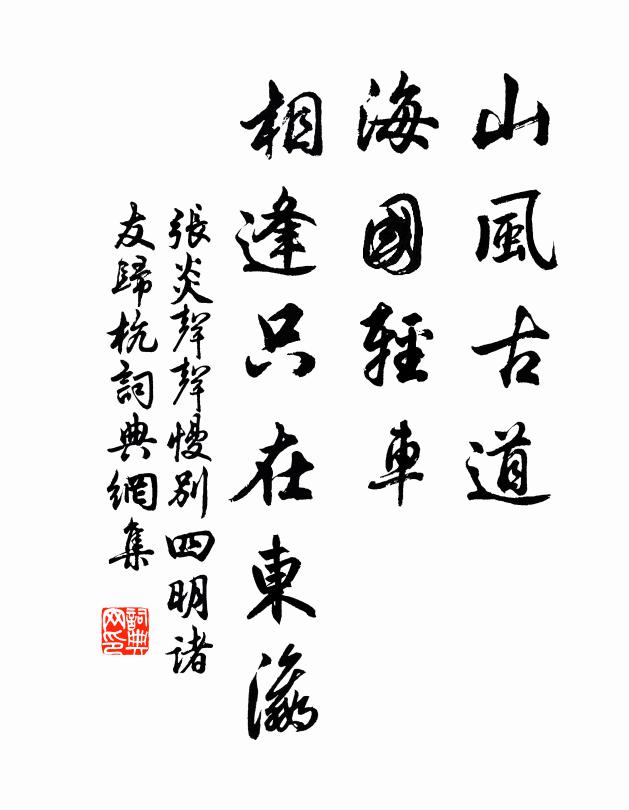 山風古道
海國輕車
相逢只在東瀛
張炎聲聲慢別四明諸
友歸杭詞典網集
詞典
网印